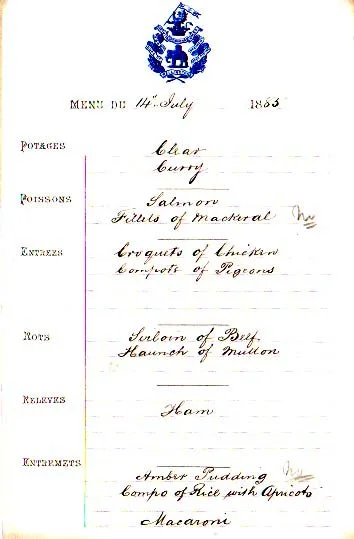 MENU DU 14th July 1885
POTAGES
Clear
Curry
POISSONS
Salmon
Fillets of Mackeral
ENTREES
Croquets of Chicken
Compote of Pigeons
ROTS
Sirloin of Beef
Haunch of Mutton
RELEVES
Ham
ENTREMETS
Amber Pudding
Compo of Rice with Apricots
Macaroni